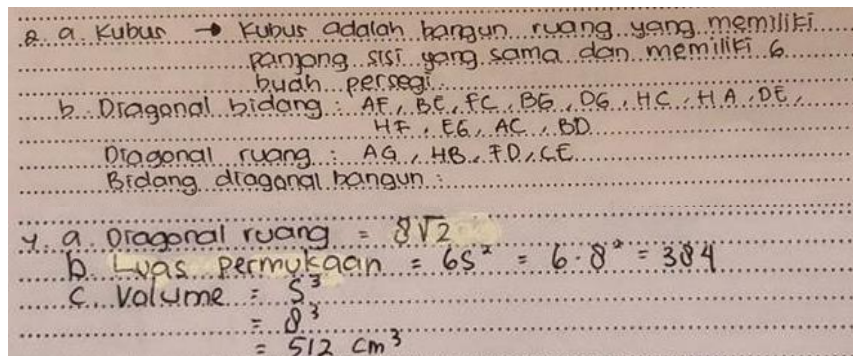 2. a. Kubus → Kubus adalah bangun ruang yang memiliki
panjang sisi yang sama dan memiliki 6
buah persegi.
b. Diagonal bidang : AF, BE, FC, BG, DG, HC, HA, DE,
HF, EG, AC, BD
Diagonal ruang : AG, HB, FD, CE
Bidang diagonal bangun :
4. a. Diagonal ruang = 8√2
b. Luas permukaan = 6S² = 6·8² = 384
c. Volume = S³
= 8³
= 512 cm³